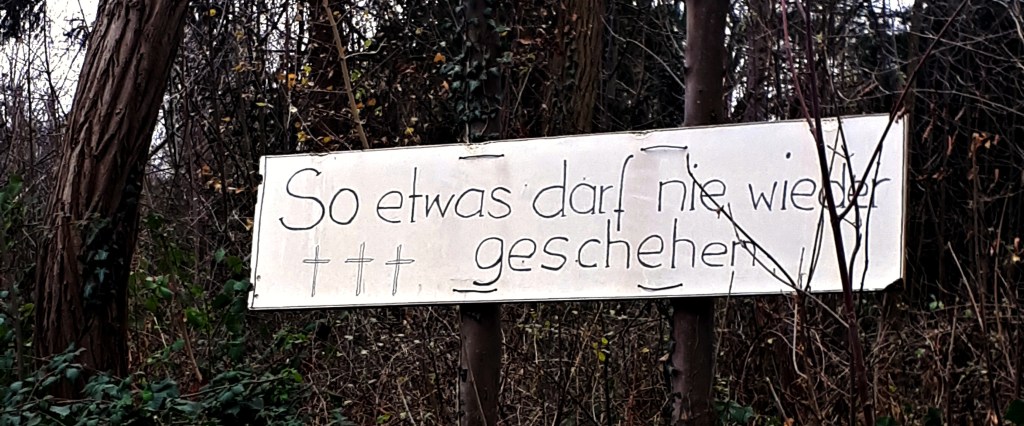 So etwas darf nie wieder
††† geschehen